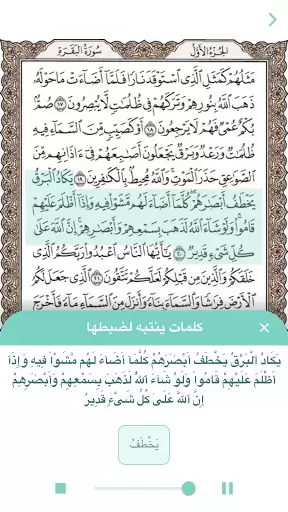 الجزء الأول
سورة البقرة
مَثَلُهُمْ كَمَثَلِ الَّذِي اسْتَوْقَدَ نَارًا فَلَمَّا أَضَاءَتْ مَا حَوْلَهُ
ذَهَبَ اللَّهُ بِنُورِهِمْ وَتَرَكَهُمْ فِي ظُلُمَاتٍ لَّا يُبْصِرُونَ ١٧ صُمٌّ
بُكْمٌ عُمْيٌ فَهُمْ لَا يَرْجِعُونَ ١٨ أَوْ كَصَيِّبٍ مِّنَ السَّمَاءِ فِيهِ
ظُلُمَاتٌ وَرَعْدٌ وَبَرْقٌ يَجْعَلُونَ أَصَابِعَهُمْ فِي ءَاذَانِهِم مِّنَ
الصَّوَاعِقِ حَذَرَ الْمَوْتِ وَاللَّهُ مُحِيطٌ بِالْكَافِرِينَ ١٩ يَكَادُ الْبَرْقُ
يَخْطَفُ أَبْصَارَهُمْ كُلَّمَا أَضَاءَ لَهُم مَّشَوْا فِيهِ وَإِذَا أَظْلَمَ عَلَيْهِمْ
قَامُوا وَلَوْ شَاءَ اللَّهُ لَذَهَبَ بِسَمْعِهِمْ وَأَبْصَارِهِمْ إِنَّ اللَّهَ عَلَىٰ
كُلِّ شَيْءٍ قَدِيرٌ ٢٠ يَا أَيُّهَا النَّاسُ اعْبُدُوا رَبَّكُمُ الَّذِي
خَلَقَكُمْ وَالَّذِينَ مِن قَبْلِكُمْ لَعَلَّكُمْ تَتَّقُونَ ٢١ الَّذِي جَعَلَ لَكُمُ
الْأَرْضَ فِرَاشًا وَالسَّمَاءَ بِنَاءً وَأَنزَلَ مِنَ السَّمَاءِ مَاءً فَأَخْرَجَ
كلمات ينتبه لضبطها
يَكَادُ الْبَرْقُ يَخْطَفُ أَبْصَرَهُمْ كُلَّمَا أَضَاءَ لَهُم مَّشَوْا فِيهِ وَإِذَا
أَظْلَمَ عَلَيْهِمْ قَامُوا وَلَوْ شَاءَ اللَّهُ لَذَهَبَ بِسَمْعِهِمْ وَأَبْصَرِهِمْ
إِنَّ اللَّهَ عَلَى كُلِّ شَيْءٍ قَدِيرٌ
يَخْطَفُ